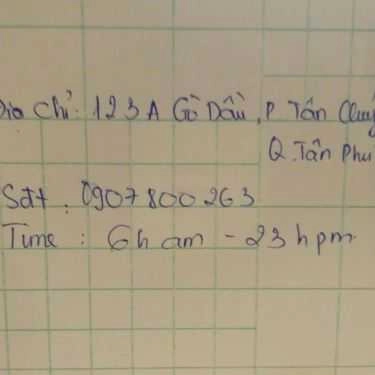 Địa chỉ: 123A Gò Dầu, P Tân
Q. Tân Phú
Sđt: 0907800263
Time: 6h am - 23h pm